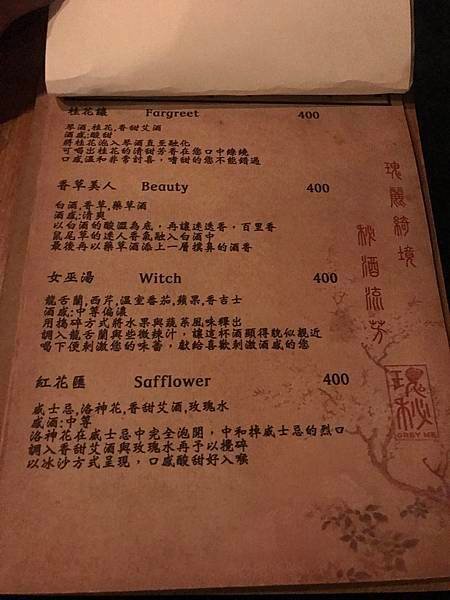 桂花釀 Fargreet 400
琴酒,桂花,香甜艾酒
酒感:酸甜
將桂花泡入琴酒直至融化
可喝出桂花的清甜芳香在您口中綠繞
口感溫和非常討喜,嗜甜的您不能錯過
香草美人 Beauty 400
白酒,香草,藥草酒
酒感:清爽
以白酒的酸溫為底,再讓迷迭香,百里香
鼠尾草的迷人香氣融入白酒中
最後再以藥草酒添上一層樸真的酒香
女巫湯 Witch 400
龍舌蘭,西芹,溫室番茄,蘋果,香吉士
酒感:中等偏濃
用搗碎方式將水果與蔬菜風味釋出
調入龍舌蘭與些微辣汁,讓這杯酒顯得貌似親近
喝下便刺激您的味蕾,獻給喜歡刺激酒感的您
紅花匯 Safflower 400
威士忌,洛神花,香甜艾酒,玫瑰水
威酒:中等
洛神花在威士忌中完全泡開,中和掉威士忌的烈口
調入香甜艾酒與玫瑰水再予以攪碎
以冰沙方式呈現,口感酸甜好入喉
瑰麗綺境
秘酒流芳
瑰秘